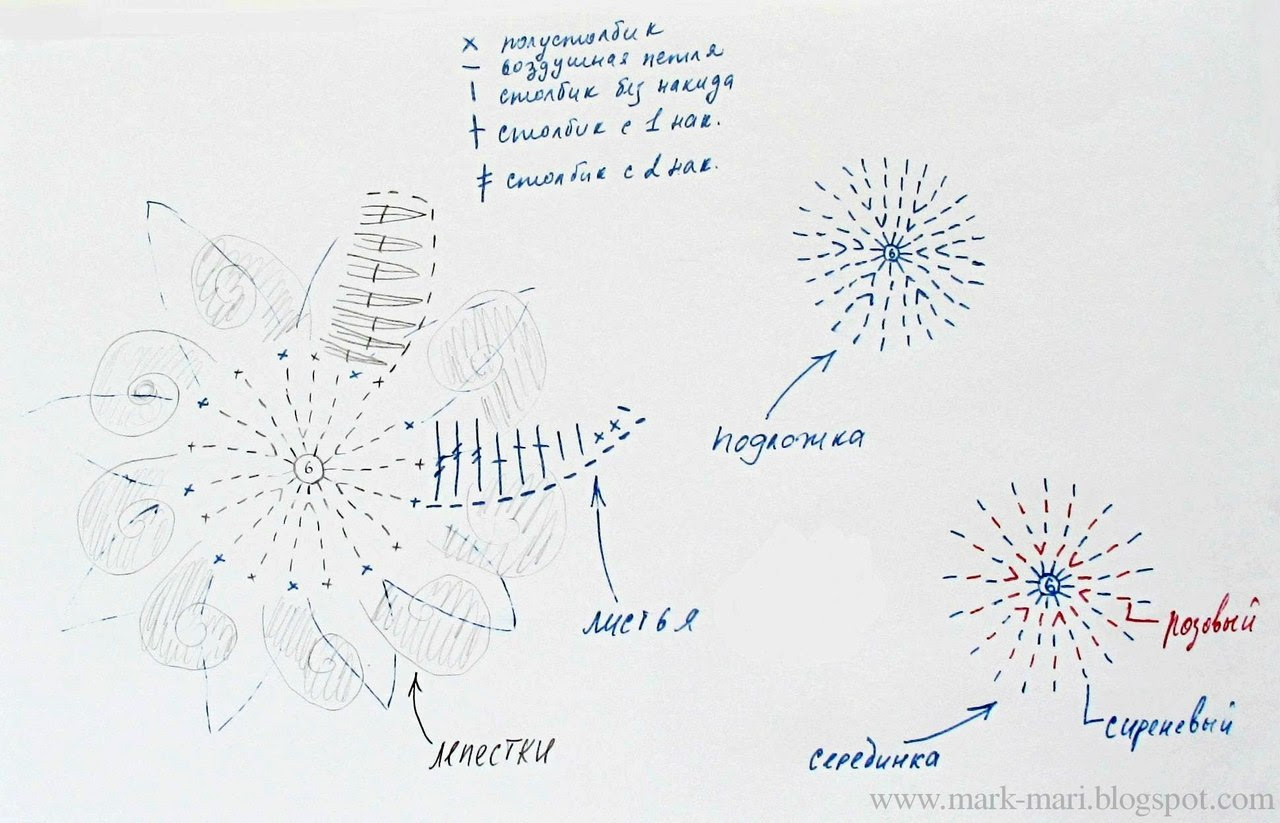 x полустолбик
– воздушная петля
| столбик без накида
† столбик с 1 нак.
ǂ столбик с 2 нак.
6
6
подложка
6
листья
розовый
сиреневый
лепестки
серединка
www.mark-mari.blogspot.com